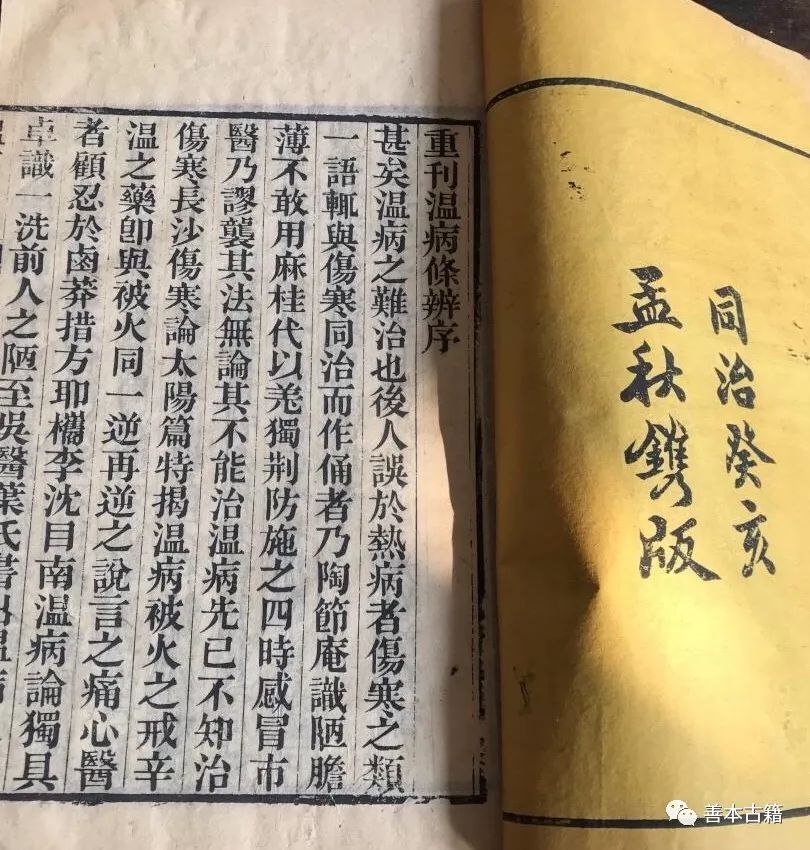 同治癸亥
孟秋鐫版
重刊温病條辨序
甚矣温病之難治也後人誤於熱病者傷寒之類
一語輒與傷寒同治而作俑者乃陶節庵識陋膽
薄不敢用麻桂代以羌獨荆防施之四時感冒市
醫乃謬襲其法無論其不能治温病先已不知治
傷寒長沙傷寒論太陽篇特揭温病被火之戒辛
温之藥卽與被火同一逆再逆之說言之痛心醫
者顧忍於鹵莽措方耶檇李沈目南温病論獨具
卓識一洗前人之陋至吳醫葉氏書出温病
善本古籍